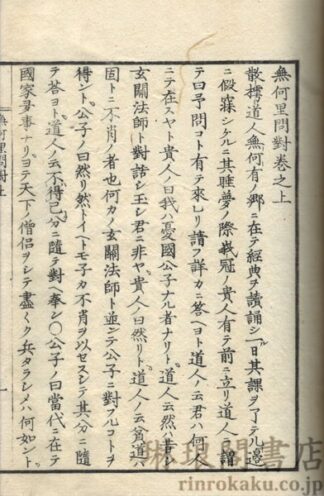 無何里問對巻之上
散樗道人無何有ノ郷ニ在テ經典ヲ讀誦シ一日其課ヲ了テル邉
ニ假寐シケルニ其睡夢ノ際峩冠ノ貴人有テ前ニ立リ道人ニ謂
テ曰予問コト有テ來レリ請フ詳カニ答ヘヨト道人ノ云君ハ何人
ニテ在スヤト貴人ノ曰我ハ憂國公子ナル者ナリト道人ノ云然
玄關法師ト對話シ玉シ君ニ非ヤ貴人ノ曰然リト道人ノ云貧道ハ
固トニ不肖ノ者也何カノ玄關法師ト並ンテ公子ニ對フルコトヲ
得ント公子ノ曰然リ然トイヘトモ子カ不肖ヲ以セスシテ其分ニ隨
テ答ヨト道人ノ云不得已分ニ隨テ對ヘ奉ン〇公子ノ曰當代ニ在テ
國家ノ事ナリヨテ天下ノ僧侶ヲシテ盡ク兵タラシメハ何如ント
無何里問對上
一
琳琅閣書店
rinrokaku.co.jp